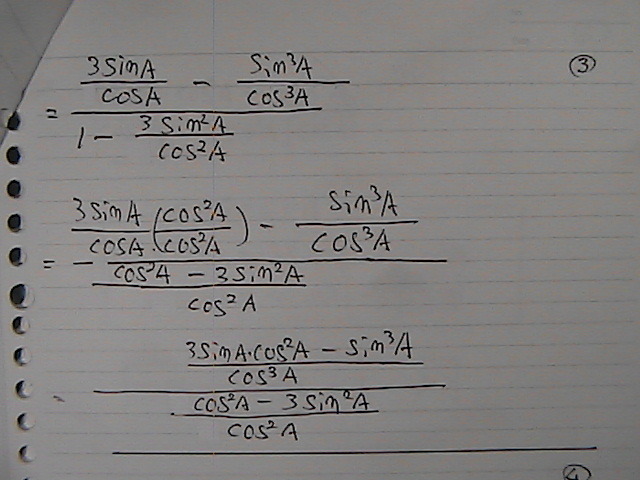 3SinA/cosA - Sin³A/cos³A ③
= 
1 - 3Sin²A/cos²A
3SinA/cosA (cos²A/cos²A) - Sin³A/cos³A
=
cos²A - 3Sin²A
cos²A
3SinA·cos²A - Sin³A
cos³A
=
cos²A - 3Sin²A
cos²A
④